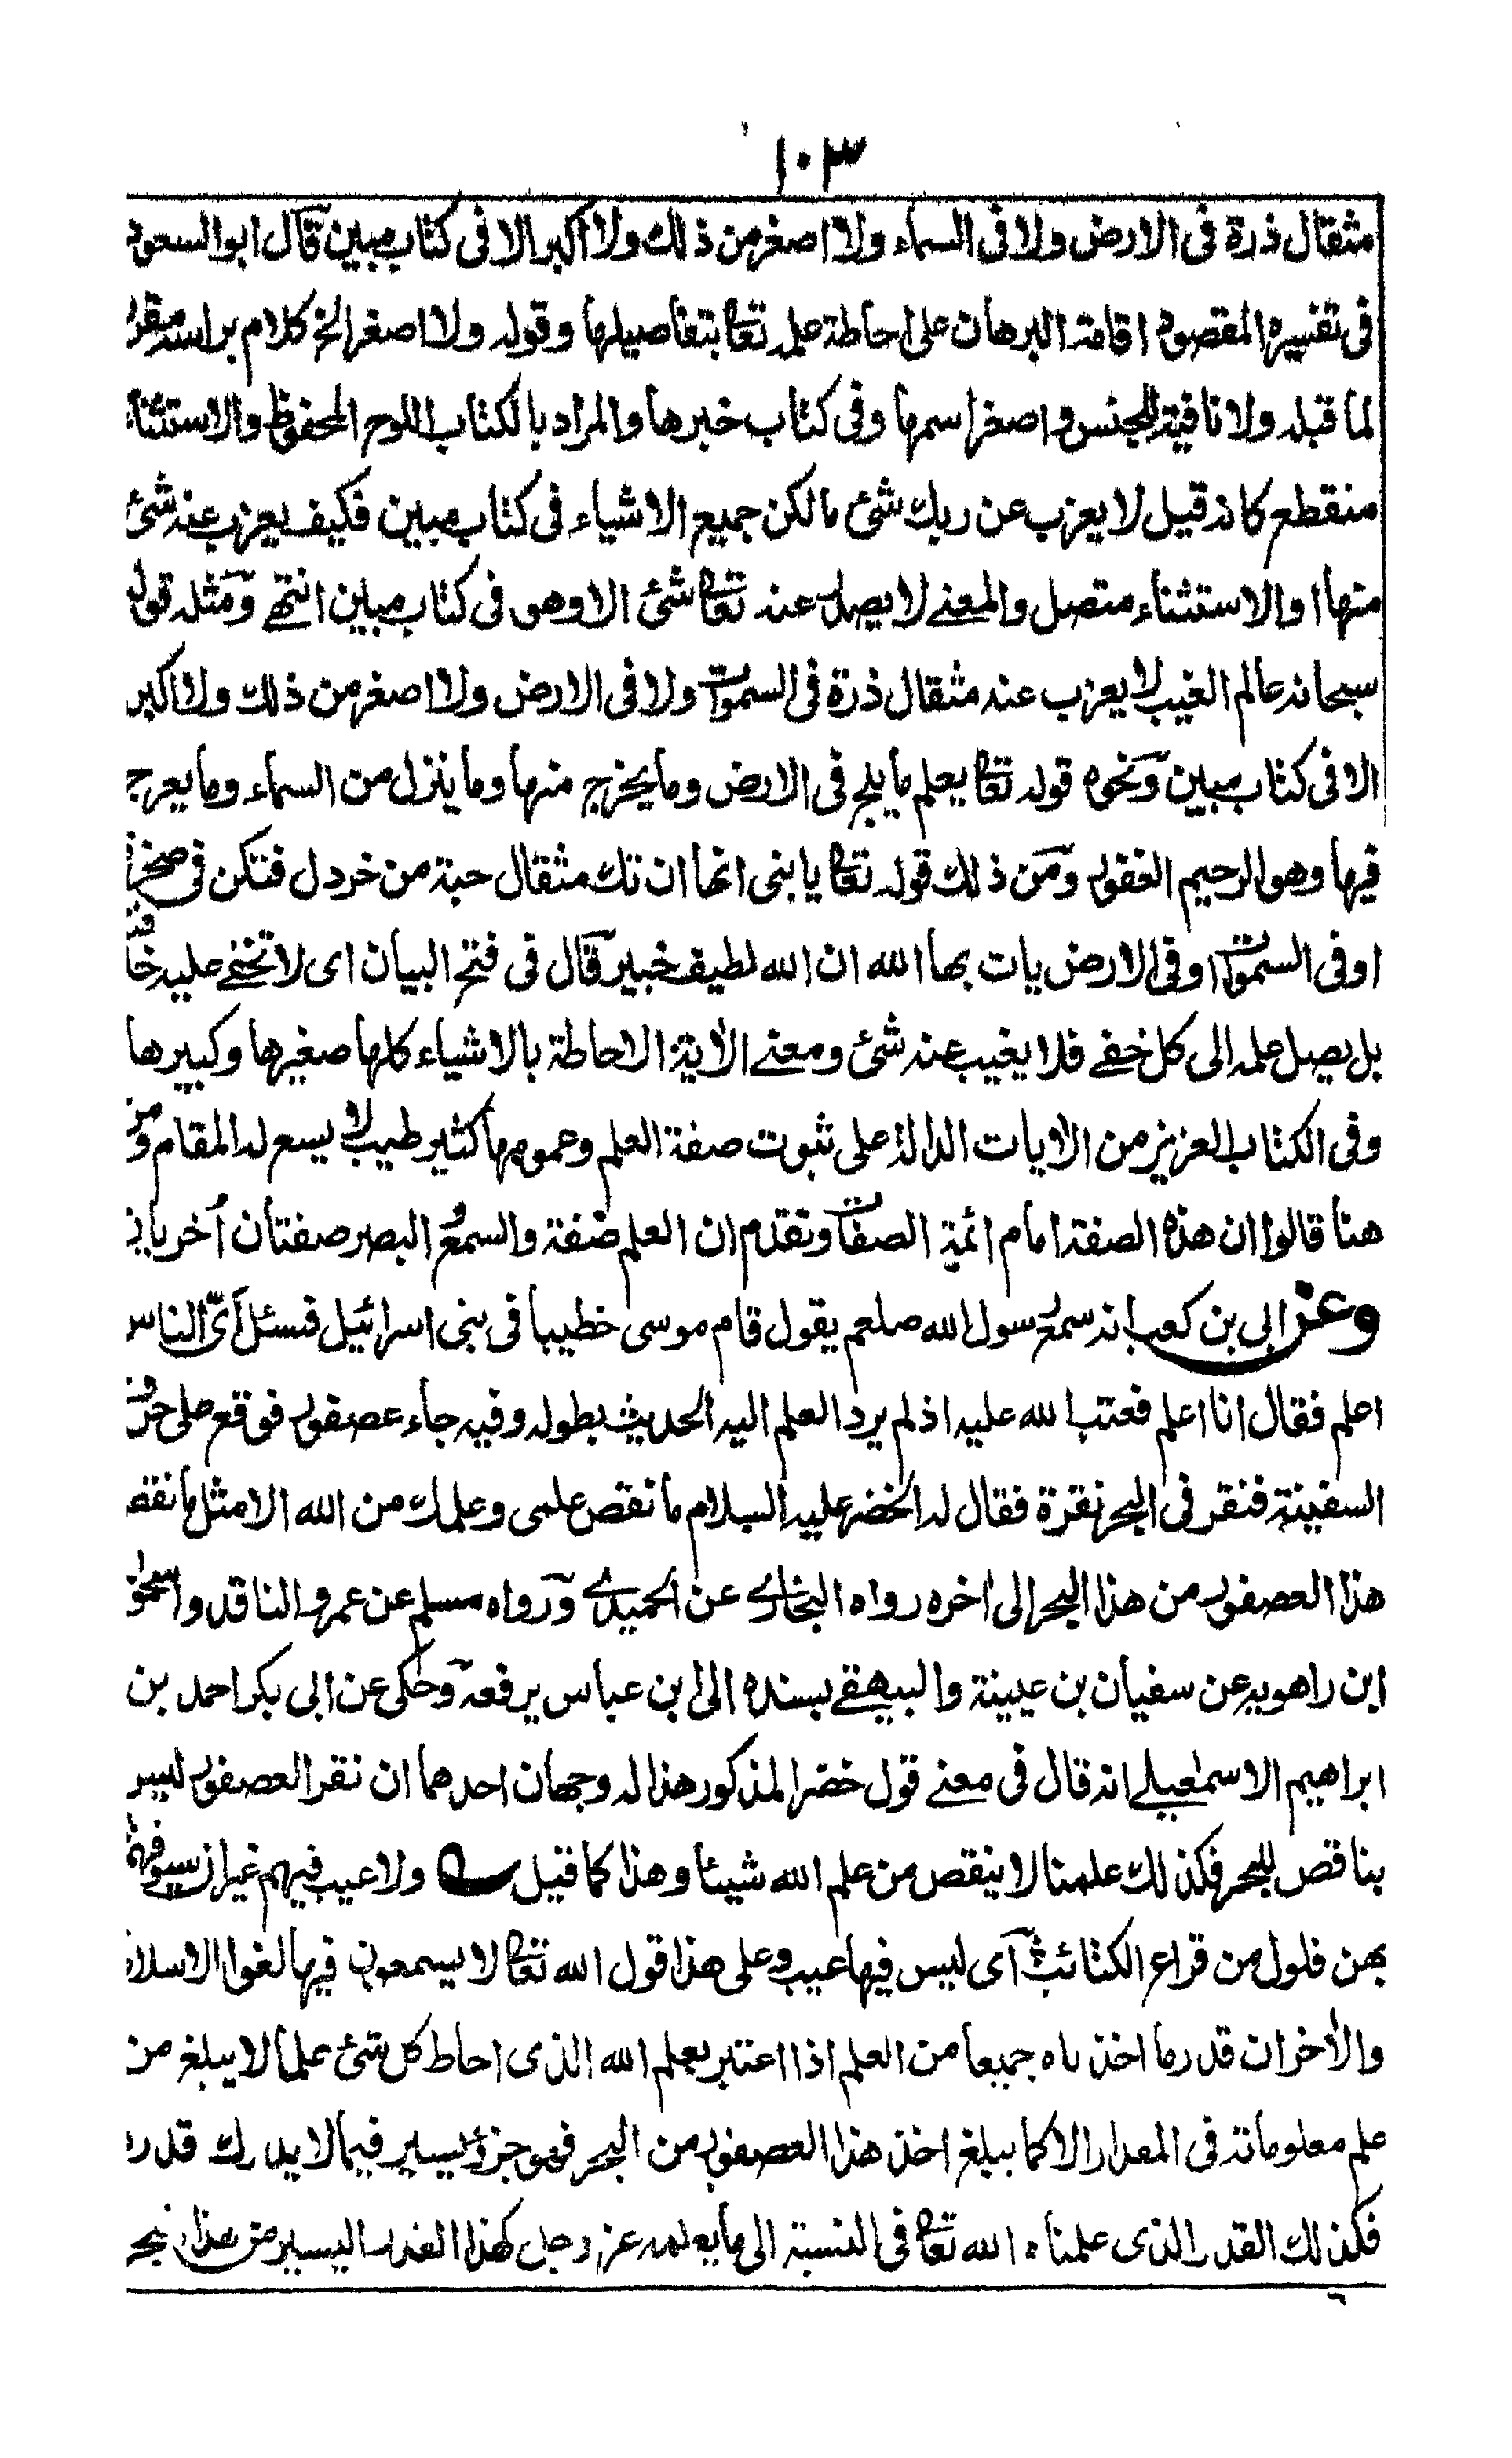 ١٠٣
مثقال ذرة في الارض ولا في السماء ولا اصغر من ذلك ولا اكبر الا في كتاب مبين قال ابو السعود
في تفسيره المقصود اقامة البرهان على احاطة علمه تعا بتفاصيلها وقوله ولا اصغر الخ كلام براسه مقرر
لما قبله ولا نافية للجنس واصغر اسمها وفي كتاب خبرها والمراد بالكتاب اللوح المحفوظ والاستثناء
منقطع كانه قيل لا يعزب عن ربك شئ ما لكن جميع الاشياء في كتاب مبين فكيف يعزب عنه شئ
منها او الاستثناء متصل والمعنے لا يصل عنه تعا شئ الا وهو في كتاب مبين انتهے ومثله قوله
سبحانه عالم الغيب لا يعزب عنه مثقال ذرة في السموات ولا في الارض ولا اصغر من ذلك ولا اكبر
الا في كتاب مبين ونحوه قوله تعا يعلم ما يلج في الارض وما يخرج منها وما ينزل من السماء وما يعرج
فيها وهو الرحيم الغفور ومن ذلك قوله تعا يا بنى انها ان تك مثقال حبة من خردل فتكن في صخرة
او في السموات او في الارض يات بها الله ان الله لطيف خبير قال في فتح البيان اى لا تخفے عليه خافية
بل يصل علمه الى كل خفے فلا يغيب عنه شئ ومعنے الاية الاحاطة بالاشياء كلها صغيرها وكبيرها
وفي الكتاب العزيز من الايات الدالة على ثبوت صفة العلم وعمومها كثير طيب لا يسع له المقام ومن
هنا قالوا ان هذه الصفة امام ائمة الصفات وتقدم ان العلم صفة والسمع و البصر صفتان اُخريان
وعن ابى بن كعب انه سمع رسول الله صلعم يقول قام موسى خطيبا في بنى اسرائيل فسئل اَىّ الناس
اعلم فقال انا اعلم فعتب الله عليه اذ لم يرد العلم اليه الحديث بطوله وفيه جاء عصفور فوقع على حرف
السفينة فنقر في البحر نقرة فقال له الخضر عليه السلام ما نقص علمى وعلمك من الله الا مثل ما نقص
هذا العصفور من هذا البحر الى اخره رواه البخارے عن الحميدے ورواه مسلم عن عمرو الناقد واسحٰق
ابن راهويه عن سفيان بن عيينة والبيهقے بسنده الى ابن عباس يرفعه وحكى عن ابى بكر احمد بن
ابراهيم الاسمٰعيلے انه قال في معنے قول خضر المذكور هذا له وجهان احدهما ان نقر العصفور ليس
بناقص للبحر فكذلك علمنا لا ينقص من علم الله شيئا وهذا كما قيل ولا عيب فيهم غير ان سيوفهم
بهن فلول من قراع الكتائب اى ليس فيها عيب وعلى هذا قول الله تعا لا يسمعون فيها لغوا الا سلاما
والاٰخر ان قدر ما اخذناه جميعا من العلم اذا اعتبر بعلم الله الذى احاط كل شئ علما لا يبلغ من
علم معلوماته في المقدار الا كما يبلغ اخذ هذا العصفور من البحر فهو جزؤ يسير فيما لا يدرك قدره
فكذلك القدر الذى علمناه الله تعا في النسبة الى ما يعلمه عز وجل كهذا القدر اليسير من هذا البحر